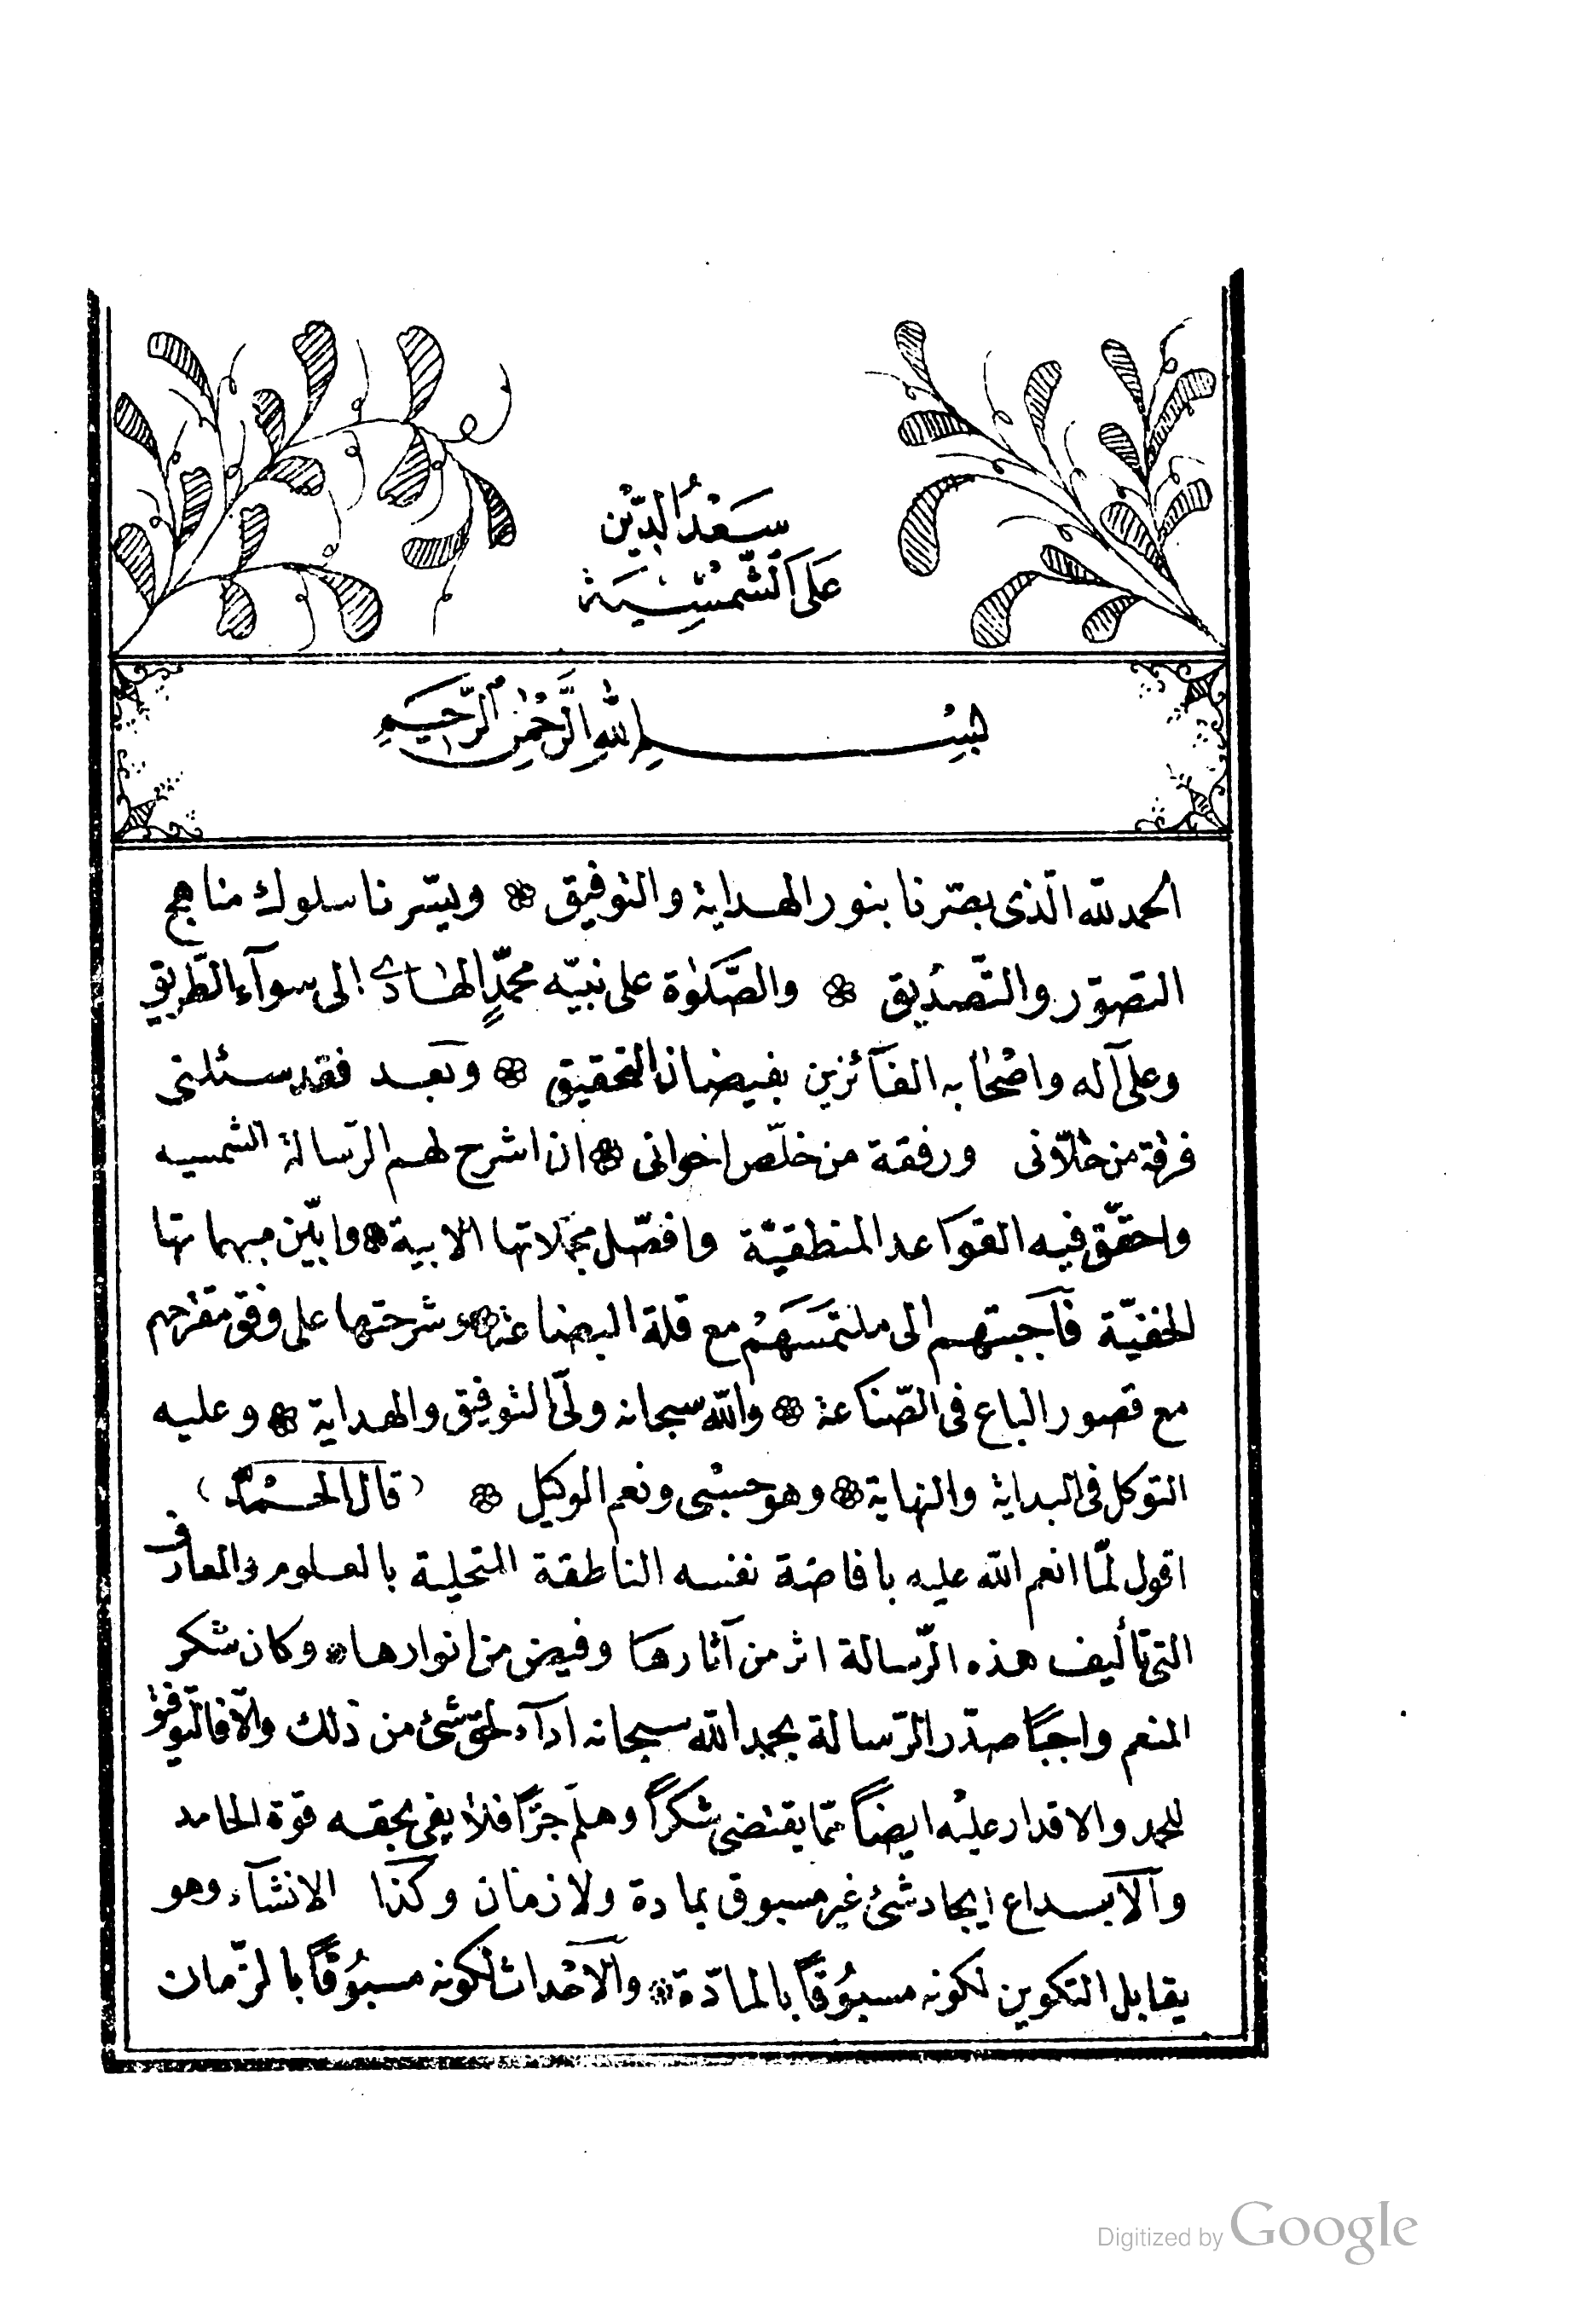 سَعْدُ الدِّيْن
عَلَى الشَّمْسِيَة
بِسْمِ اللهِ الرَّحْمٰنِ الرَّحِيْمِ
الحمد لله الّذى بصّرنا بنور الهداية والتوفيق ۞ ويسّرنا سلوك مناهج
التصوّر والتّصديق ۞ والصَّلٰوة على نبيّه محمّدٍ الهادى الى سوآء الطّريق
وعلى آله واصْحٰابه الفآئزين بفيضان التحقيق ۞ وبعد فقد سئلنى
فرقة من خلّانى ورفقة من خلّص اخوانى ۞ ان اشرح لهم الرّسالة الشمسيه
واحقّق فيه القواعد المنطقيّة وافصّل مجملاتها الابية ۞ وابيّن مبهماتها
الخفيّة فآجبتهم الى ملتمَسَهُمْ مع قلة البضاعة ۞ وشرحتها على وفق مقترحهم
مع قصور الباع فى الصّناعة ۞ والله سبحانه ولىّ التوفيق والهداية ۞ وعليه
التوكل فى البداية والنهاية ۞ وهو حسْبى ونعم الوكيل ۞ (قال الحمد لله)
اقول لمّا انعم الله عليه بافاضة نفسه الناطقة المتحلية بالعلوم والمعارف
التى تأليف هذه الرّسالة اثر من آثارها وفيض من انوارها ۞ وكان شكر
المنعم واجبًا صدّر الرّسالة بحمد الله سبحانه ادآء لحق شئ من ذلك والّا فالتّوفيق
للحمد والاقدار عليْه ايضاً ممّا يقتضى شكراً وهلمّ جرًّا فلا يفى بحقه قوّة الحامد
والابداع ايجاد شئ غير مسبوق بمادة ولا زمان وكذا الانشآء وهو
يقابل التكوين لكونه مسبُوقاً بالمادّة ۞ والاحْداث لكونه مسبُوقاً بالزّمان
Digitized by Google